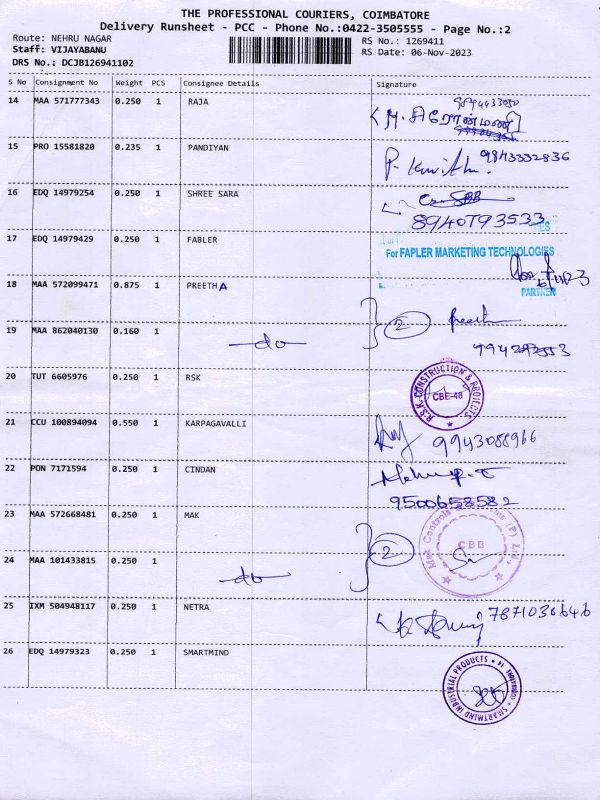 THE PROFESSIONAL COURIERS, COIMBATORE
Delivery Runsheet - PCC - Phone No.:0422-3505555 - Page No.:2
Route: NEHRU NAGAR RS No.: 1269411
Staff: VIJAYABANU RS Date: 06-Nov-2023
DRS No.: DCJB126941102
S No Consignment No Weight PCS Consignee Details Signature
14 MAA 571777343 0.250 1 RAJA
15 PRO 15581820 0.235 1 PANDIYAN 9843332836
16 EDQ 14979254 0.250 1 SHREE SARA
8940793533
17 EDQ 14979429 0.250 1 FABLER
For FAPLER MARKETING TECHNOLOGIES
PARTNER
18 MAA 572099471 0.875 1 PREETHA 2
19 MAA 862040130 0.160 1 do
20 TUT 6605976 0.250 1 RSK
R.S.K. CONSTRUCTION & PROJECTS
CBE-48
21 CCU 100894094 0.550 1 KARPAGAVALLI
9943088966
22 PON 7171594 0.250 1 CINDAN
9500658582
23 MAA 572668481 0.250 1 MAK
2 CBB
24 MAA 101433815 0.250 1 do
25 IXM 504948117 0.250 1 NETRA 7871030646
26 EDQ 14979323 0.250 1 SMARTMIND
SMARTMIND INDUSTRIAL PRODUCTS